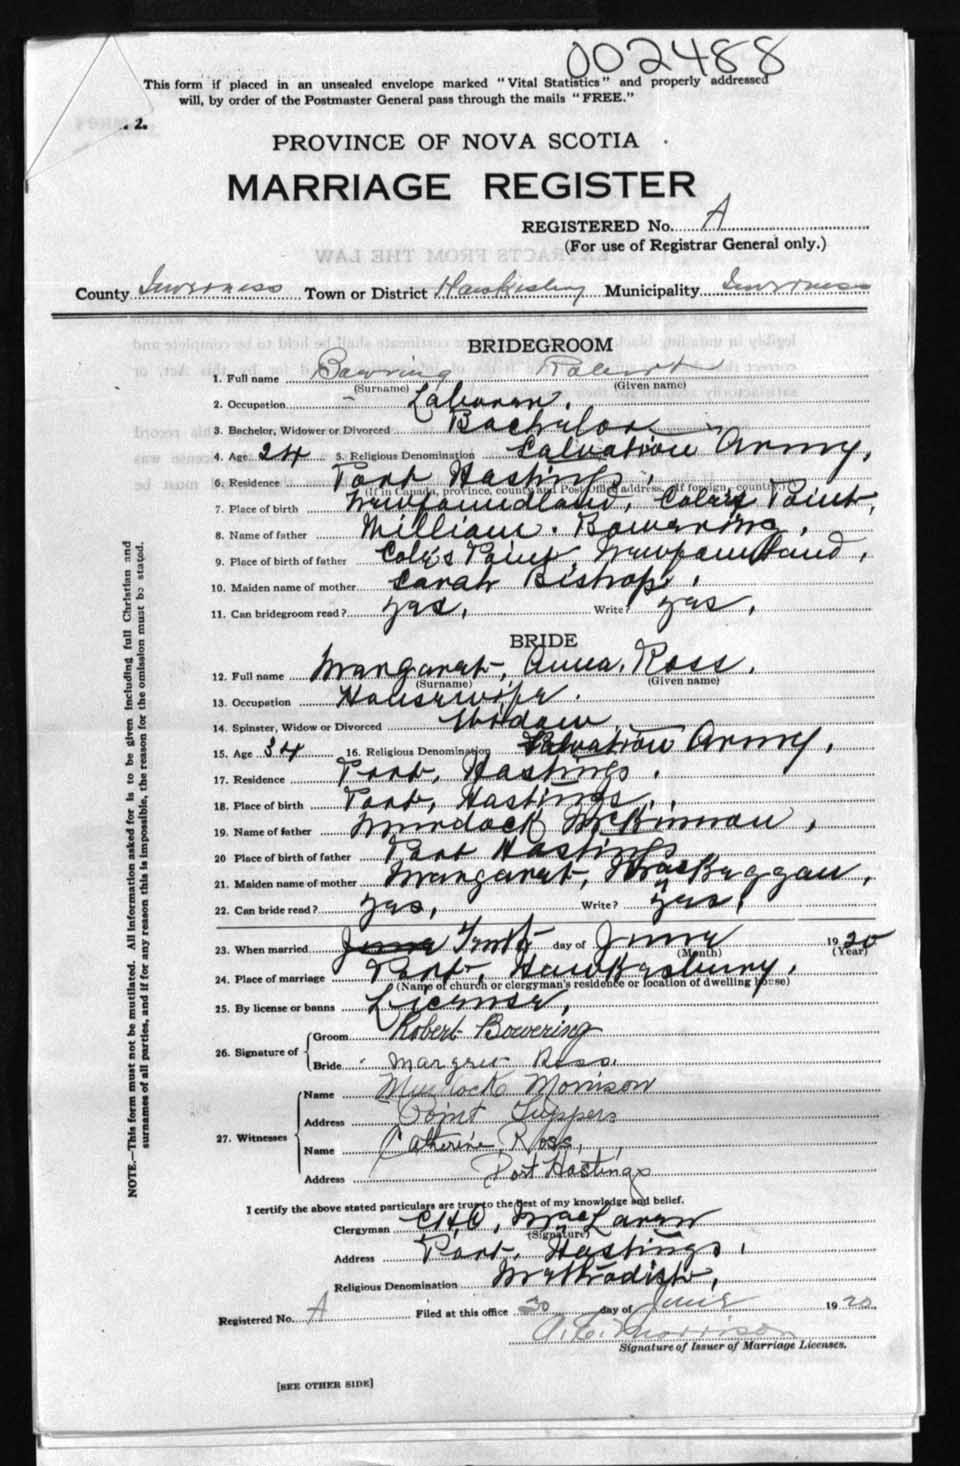 002488
This form if placed in an unsealed envelope marked "Vital Statistics" and properly addressed
will, by order of the Postmaster General pass through the mails "FREE."
. 2.
PROVINCE OF NOVA SCOTIA
MARRIAGE REGISTER
REGISTERED No. A
(For use of Registrar General only.)
County Inverness Town or District Hawkesbury Municipality Inverness
BRIDEGROOM
1. Full name Bowring Robert
(Surname) (Given name)
2. Occupation Laborer.
3. Bachelor, Widower or Divorced Bachelor
4. Age 24 5. Religious Denomination Salvation Army.
6. Residence Port Hastings.
(If in Canada, province, county and Post Office address. If foreign, country)
7. Place of birth Newfoundland, Coley's Point,
8. Name of father William. Bowering,
9. Place of birth of father Coley's Point, Newfoundland,
10. Maiden name of mother Sarah Bishop,
11. Can bridegroom read? yes. Write? yes.
BRIDE
12. Full name Margaret, Anna, Ross.
(Surname) (Given name)
13. Occupation Housewife.
14. Spinster, Widow or Divorced Widow
15. Age 34 16. Religious Denomination Salvation Army.
17. Residence Port, Hastings.
18. Place of birth Port, Hastings.
19. Name of father Murdock McKinnon,
20 Place of birth of father Port Hastings
21. Maiden name of mother Margaret,
22. Can bride read? yes, Write? yes.
23. When married June day of June 1920
(Month) (Year)
24. Place of marriage Port, Hawkesbury,
(Name of church or clergyman's residence or location of dwelling house)
25. By license or banns License,
26. Signature of Groom Robert Bowering
Bride Ross.
27. Witnesses Name Murdock Morrison
Address Point Tuppers
Name Catherine Ross,
Address Port Hastings
I certify the above stated particulars are true to the best of my knowledge and belief.
Clergyman MacLaren
(Signature)
Address Port, Hastings,
Religious Denomination Methodist,
Registered No. A Filed at this office 30 day of June 1920
Morrison
Signature of Issuer of Marriage Licenses.
[SEE OTHER SIDE]
NOTE.—This form must not be mutilated. All information asked for is to be given including full Christian and
surnames of all parties, and if for any reason this is impossible, the reason for the omission must be stated.